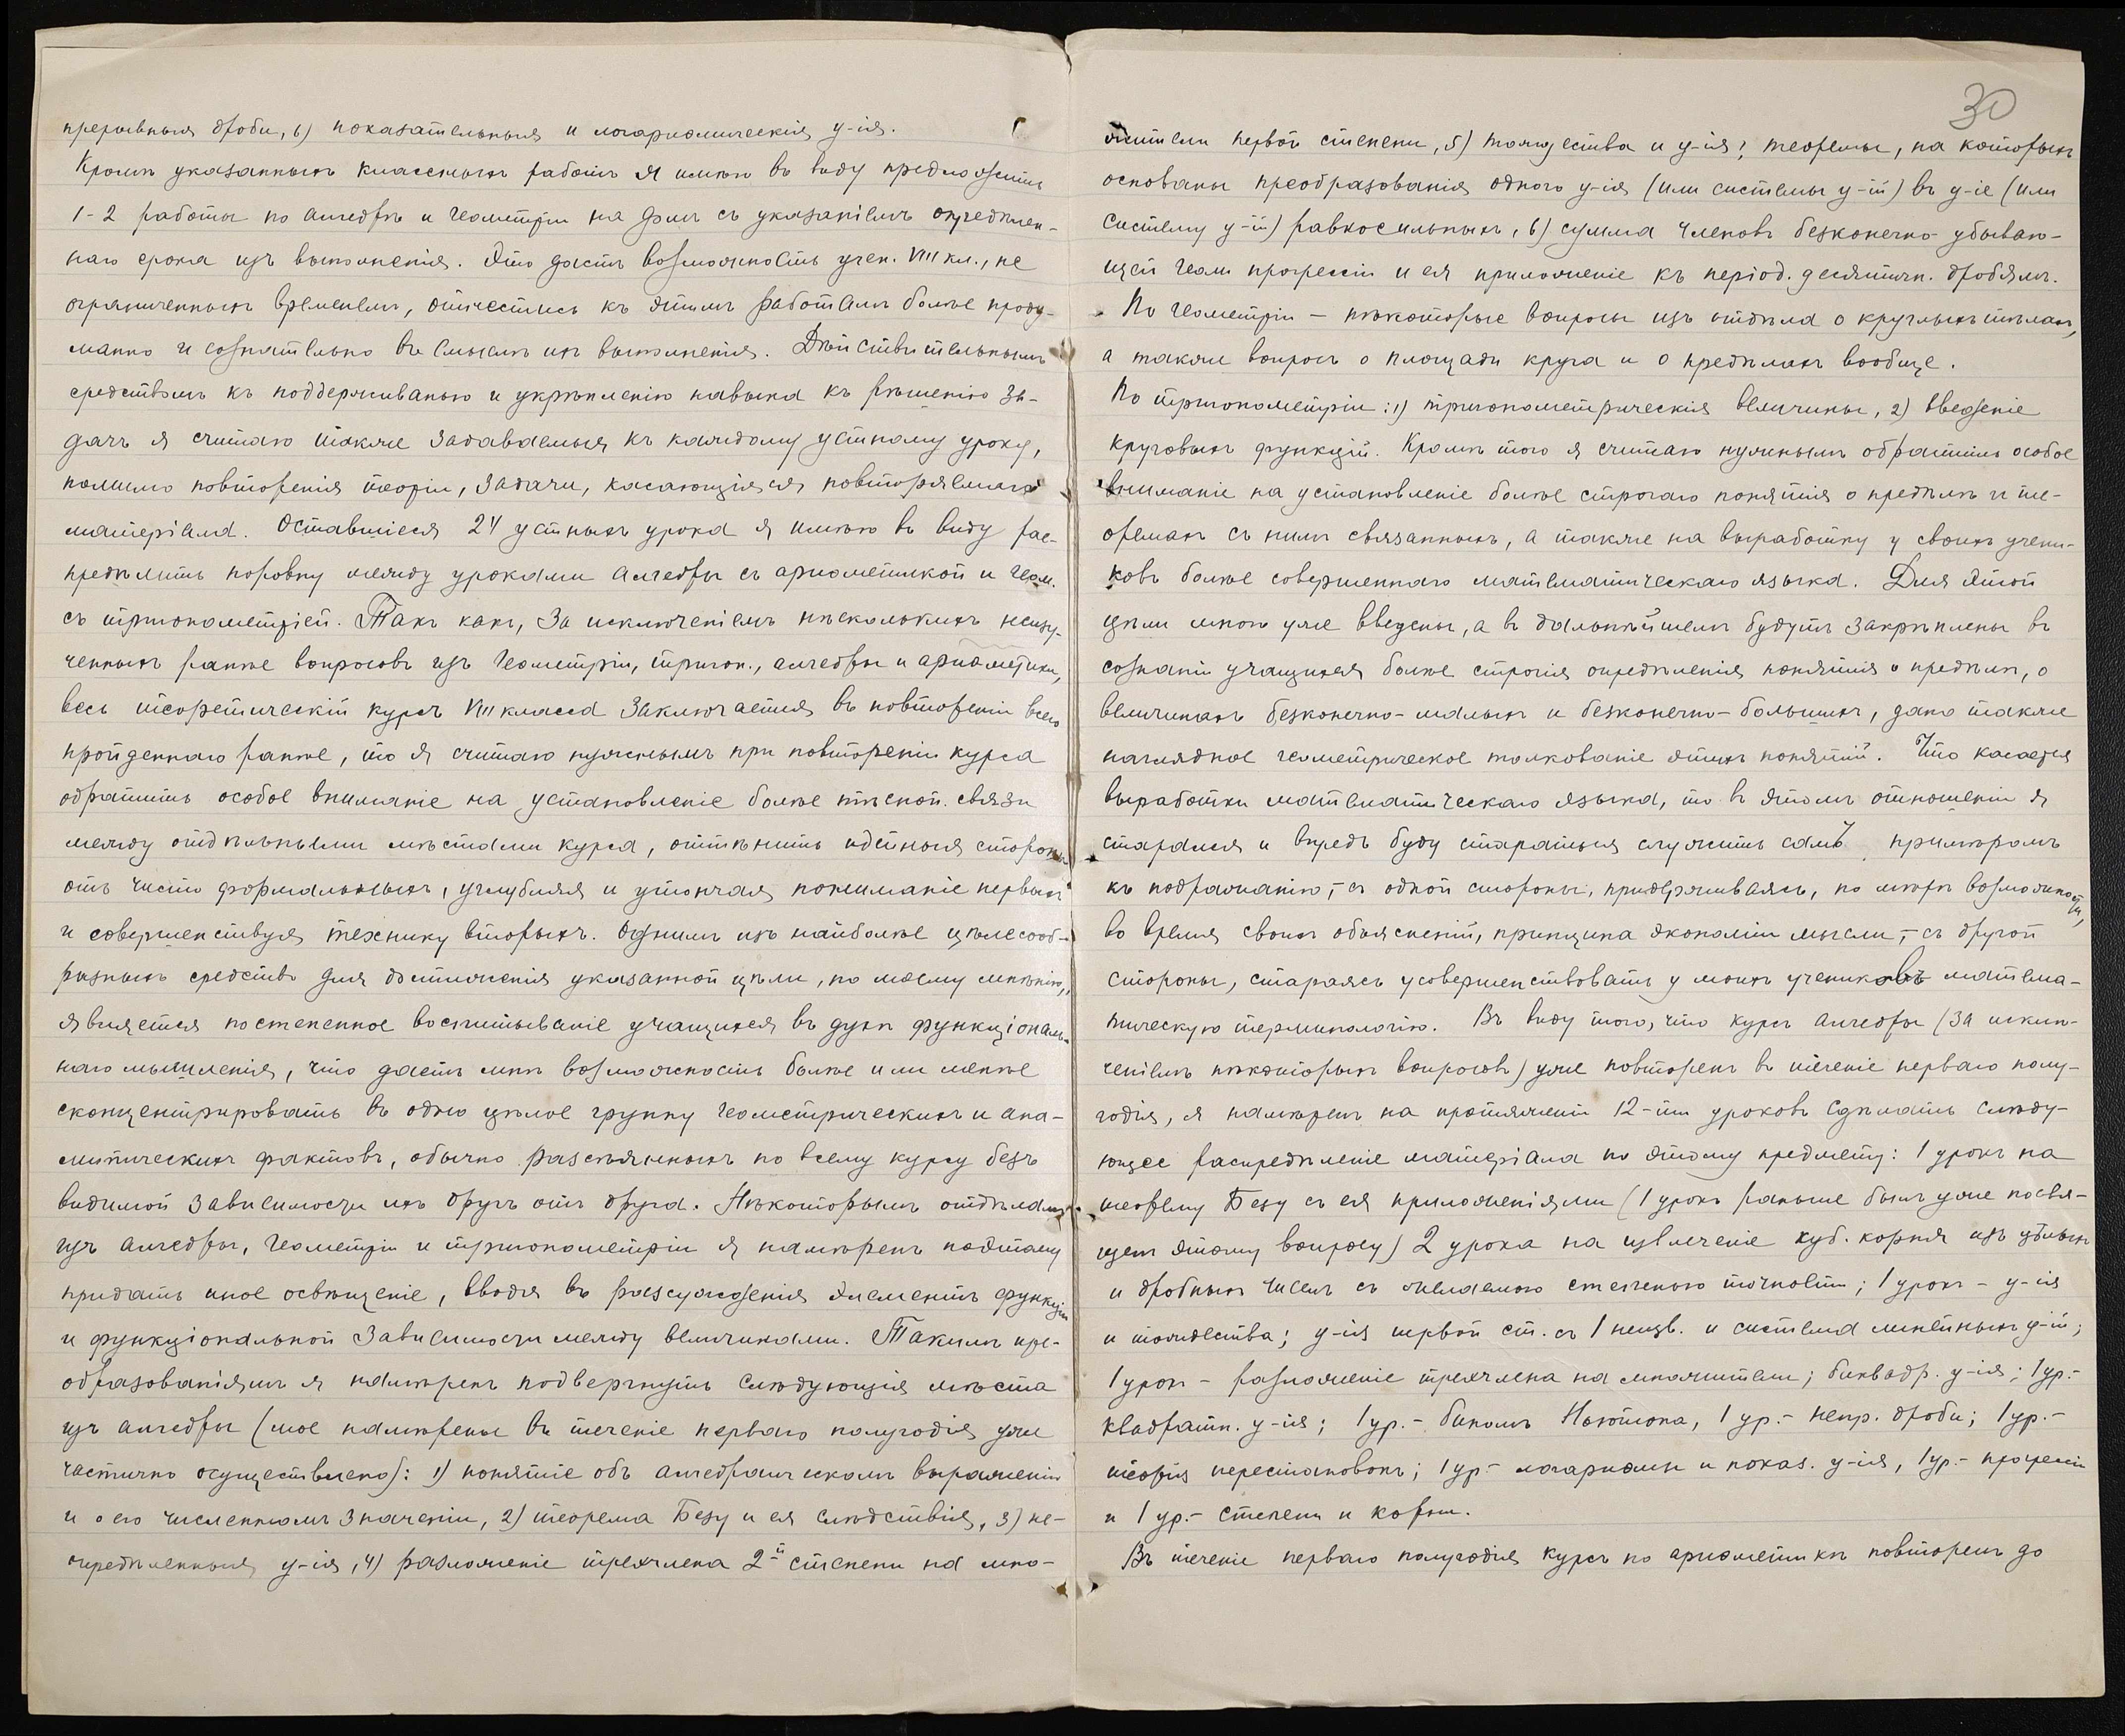 прерывныя дроби, 6) показательныя и логариѳмическія у-ія.
Кромѣ указанныхъ классныхъ работъ я имѣю въ виду предложить
1-2 работы по алгебрѣ и геометріи на домъ съ указаніемъ опредѣлен-
наго срока ихъ выполненія. Это дастъ возможность учен. VIII кл., не
ограниченнымъ временемъ, отнестись къ этимъ работамъ болѣе проду-
манно и сознательно въ смыслѣ ихъ выполненія. Дѣйствительнымъ
средствомъ къ поддерживанью и укрѣпленію навыка къ рѣшенію за-
дачъ я считаю также задаваемыя къ каждому устному уроку,
помимо повторенія теоріи, задачи, касающіяся повторяемаго
матеріала. Оставшіеся 24 устныхъ урока я имѣю въ виду рас-
предѣлить поровну между уроками алгебры съ ариѳметикой и геом.
съ тригонометріей. Такъ какъ, за исключеніемъ нѣсколькихъ неизу-
ченныхъ ранѣе вопросовъ изъ геометріи, тригон., алгебры и ариѳметики,
весь теоретическій курсъ VIII класса заключается въ повтореніи всего
пройденнаго ранѣе, то я считаю нужнымъ при повтореніи курса
обратить особое вниманіе на установленіе болѣе тѣсной связи
между отдѣльными мѣстами курса, оттѣнить идейныя стороны
отъ чисто формальныхъ, углубляя и утончая пониманіе первыхъ
и совершенствуя технику вторыхъ. Однимъ изъ наиболѣе цѣлесооб-
разныхъ средствъ для достиженія указанной цѣли, по моему мнѣнію,
является постепенное воспитываніе учащихся въ духѣ функціональ-
наго мышленія, что дастъ мнѣ возможность болѣе или менѣе
сконцентрировать въ одно цѣлое группу геометрическихъ и ана-
литическихъ фактовъ, обычно разсѣянныхъ по всему курсу безъ
видимой зависимости ихъ другъ отъ друга. Нѣкоторымъ отдѣламъ
изъ алгебры, геометріи и тригонометріи я намѣренъ поэтому
придать иное освѣщеніе, вводя въ разсужденія элементъ функціи
и функціональной зависимости между величинами. Такимъ пре-
образованіямъ я намѣренъ подвергнуть слѣдующія мѣста
изъ алгебры (мое намѣренье въ теченіе перваго полугодія уже
частично осуществлено): 1) понятіе объ алгебраическомъ выраженіи
и о его численномъ значеніи, 2) теорема Безу и ея слѣдствія, 3) не-
опредѣленныя у-ія, 4) разложеніе трехчлена 2-й степени на мно-
30
жители первой степени, 5) тождества и у-ія; теоремы, на которыхъ
основаны преобразованія одного у-ія (или системы у-ій) въ у-іе (или
систему у-ій) равносильныхъ, 6) сумма членовъ безконечно-убываю-
щей геом прогрессіи и ея приложеніе къ період. десятичн. дробямъ.
По геометріи - нѣкоторые вопросы изъ отдѣла о круглыхъ тѣлахъ,
а также вопросъ о площади круга и о предѣлахъ вообще.
По тригонометріи: 1) тригонометрическія величины, 2) введеніе
круговыхъ функцій. Кромѣ того я считаю нужнымъ обратить особое
вниманіе на установленіе болѣе строгаго понятія о предѣлѣ и те-
оремахъ съ нимъ связанныхъ, а также на выработку у своихъ учени-
ковъ болѣе совершеннаго математическаго языка. Для этой
цѣли мною уже введены, а въ дальнѣйшемъ будутъ закрѣплены въ
сознаніи учащихся болѣе строгія опредѣленія понятія о предѣлѣ, о
величинахъ безконечно-малыхъ и безконечно-большихъ, дано также
наглядное геометрическое толкованіе этихъ понятій. Что касается
выработки математическаго языка, то въ этомъ отношеніи я
старался и впредь буду стараться служить самъ примѣромъ
къ подражанію, - съ одной стороны, придерживаясь, по мѣрѣ возможности,
во время своихъ объясненій, принципа экономіи мысли, - съ другой
стороны, стараясь усовершенствовать у моихъ учениковъ матема-
тическую терминологію. Въ виду того, что курсъ алгебры (за исклю-
ченіемъ нѣкоторыхъ вопросовъ) уже повторенъ въ теченіе перваго полу-
годія, я намѣренъ на протяженіи 12-ти уроковъ сдѣлать слѣду-
ющее распредѣленіе матеріала по этому предмету: 1 урокъ на
теорему Безу съ ея приложеніями (1 урокъ раньше былъ уже посвя-
щенъ этому вопросу) 2 урока на извлеченіе куб. корня изъ цѣлыхъ
и дробныхъ чиселъ съ желаемою степенью точности; 1 урокъ - у-ія
и тождества; у-ія первой ст. съ 1 неизв. и система линейныхъ у-ій;
1 урок - разложеніе трехчлена на множители; биквадр. у-ія; 1 ур. -
квадратн. у-ія; 1 ур. - биномъ Ньютона, 1 ур. - непр. дроби; 1 ур. -
теорія перестановокъ; 1 ур. - логариѳмы и показ. у-ія, 1 ур. - прогрессіи
и 1 ур. - степени и корни.
Въ теченіе перваго полугодія курсъ по ариѳметикѣ повторенъ до